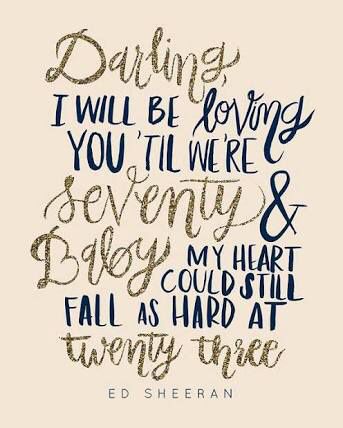 Darling,
I WILL BE loving
YOU 'TIL WE'RE
seventy &
Baby MY HEART
COULD STILL
FALL AS HARD AT
twenty three
ED SHEERAN